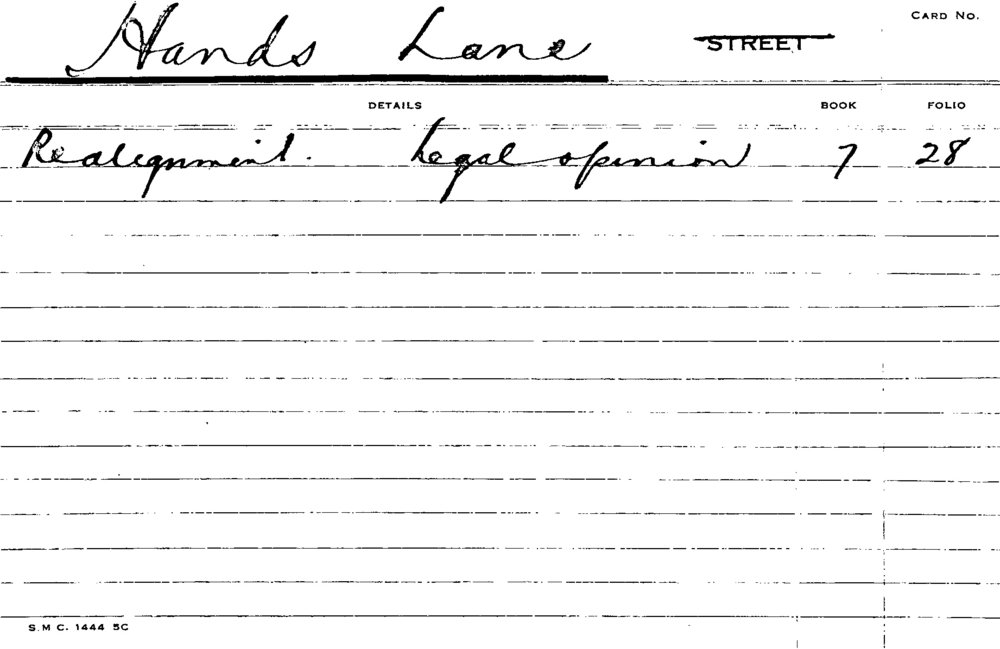 CARD NO.
Hands Lane STREET
DETAILS BOOK FOLIO
Realignment. Legal opinion 7 28
S.M C. 1444 5C